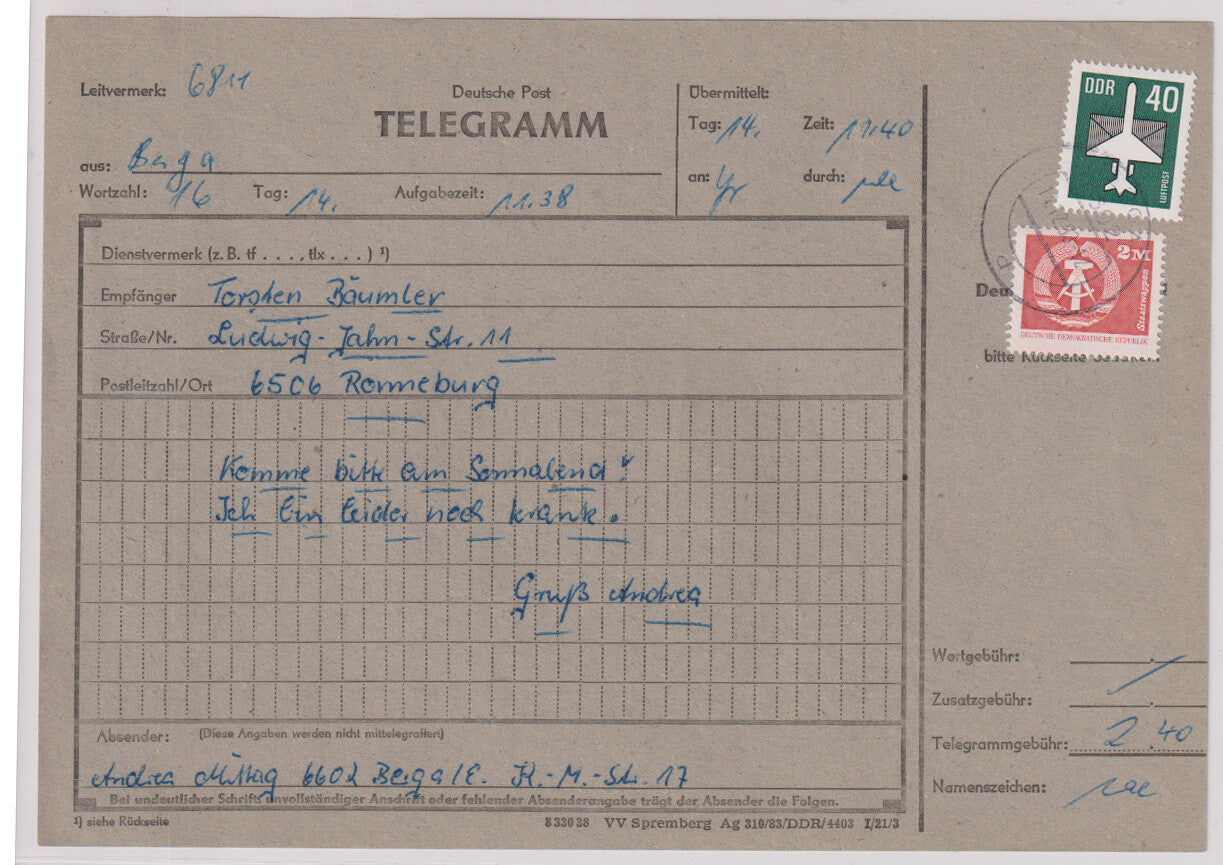 Leitvermerk: 6811
Deutsche Post
TELEGRAMM
aus: Berga
Wortzahl: 16 Tag: 14. Aufgabezeit: 11.38
Übermittelt:
Tag: 14. Zeit: 11.40
an: durch:
DDR 40
LUFTPOST
2 M
Staatswappen
DEUTSCHE DEMOKRATISCHE REPUBLIK
Deu
bitte Rückseite
Dienstvermerk (z. B. tf . . . ., tlx . . . ) ¹)
Empfänger Torsten Bäumler
Straße/Nr. Ludwig-Jahn-Str. 11
Postleitzahl/Ort 6506 Ronneburg
Komme bitte am Sonnabend!
Ich bin leider noch krank.
Gruß Andrea
Wortgebühr:
Zusatzgebühr:
Telegrammgebühr: 2.40
Namenszeichen:
Absender: (Diese Angaben werden nicht mittelegrafiert)
Andrea Mittag 6602 Berga/E. K.-M.-Str. 17
Bei undeutlicher Schrift, unvollständiger Anschrift oder fehlender Absenderangabe trägt der Absender die Folgen.
¹) siehe Rückseite
8 330 38 VV Spremberg Ag 310/83/DDR/4403 I/21/3